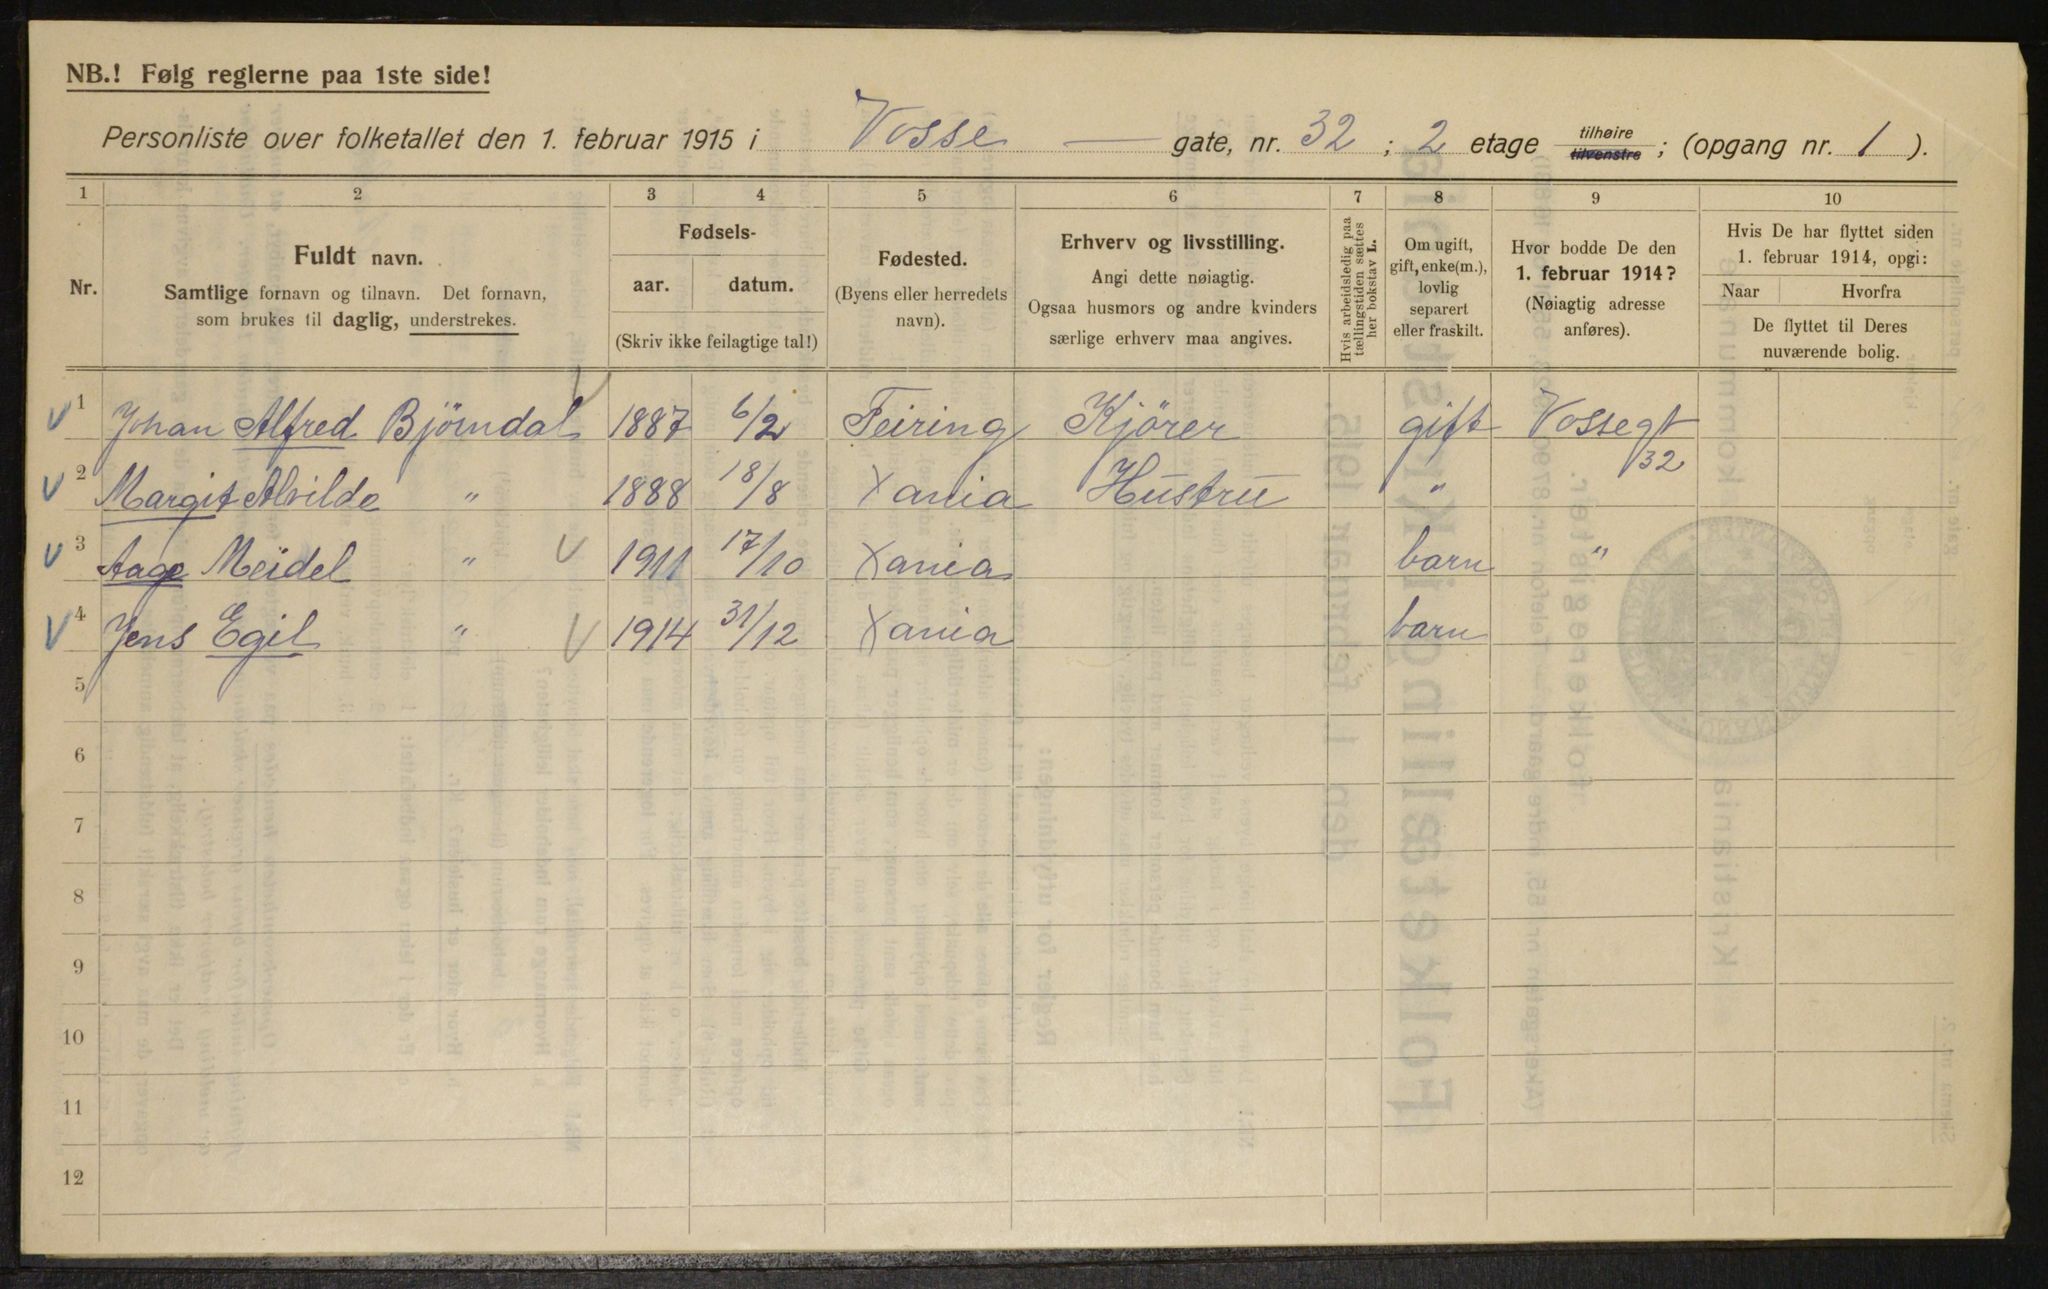 NB.! Følg reglerne paa 1ste side!
Personliste over folketallet den 1. februar 1915 i Vosse — gate, nr. 32 ; 2 etage tilhøire tilvenstre ; (opgang nr. 1 ).
1 2 3 4 5 6 7 8 9 10
Nr.
Fuldt navn.
Samtlige fornavn og tilnavn. Det fornavn,
som brukes til daglig, understrekes.
Fødsels-
aar. datum.
(Skriv ikke feilagtige tal!)
Fødested.
(Byens eller herredets
navn).
Erhverv og livsstilling.
Angi dette nøiagtig.
Ogsaa husmors og andre kvinders
særlige erhverv maa angives.
Hvis arbeidsledig paa
tællingstiden sættes
her bokstav L.
Om ugift,
gift, enke(m.),
lovlig
separert
eller fraskilt.
Hvor bodde De den
1. februar 1914?
(Nøiagtig adresse
anføres).
Hvis De har flyttet siden
1. februar 1914, opgi:
Naar Hvorfra
De flyttet til Deres
nuværende bolig.
1 Johan Alfred Bjørndal 1887 6/2 Feiring Kjörer gift Vossegt 32
2 Margit Alvilde " 1888 18/8 Xania Hustru "
3 Aage Meidel " 1911 17/10 Xania barn "
4 Jens Egil " 1914 31/12 Xania barn
5
6
7
8
9
10
11
12